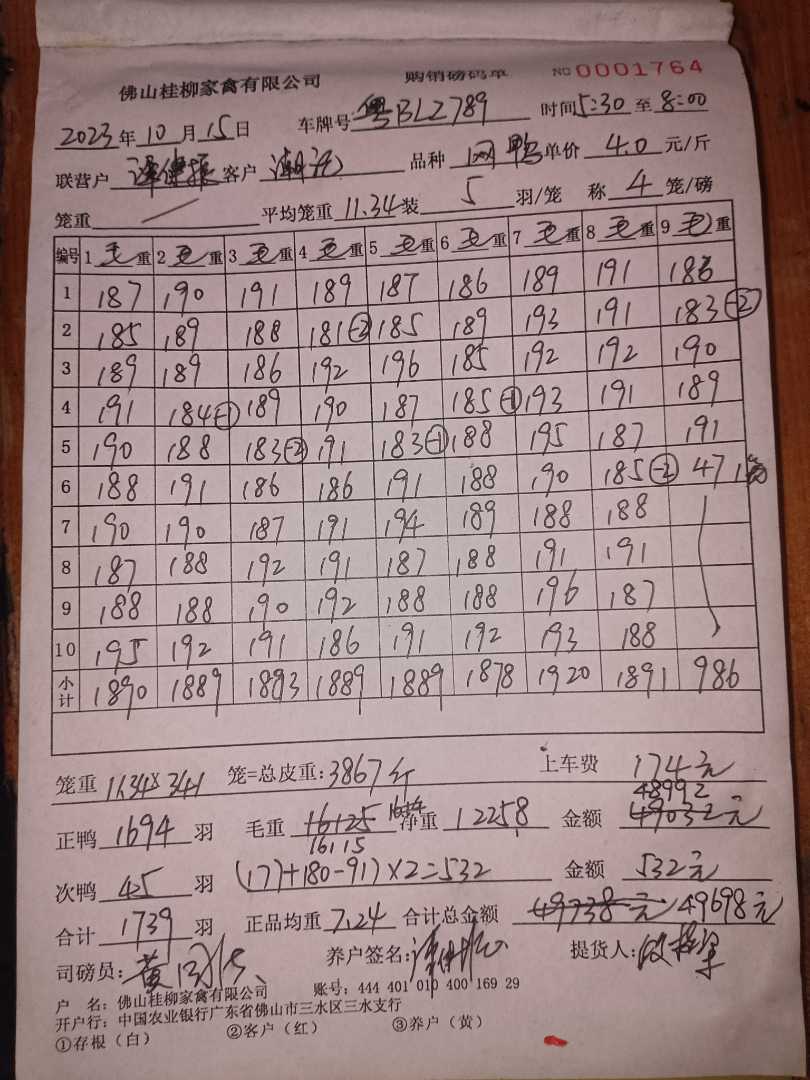 佛山桂柳家禽有限公司 购销磅码单 NO 0001764
2023年10月15日 车牌号 粤BLZ789 时间5:30至8:00
联营户 客户 品种 网鸭 单价 4.0 元/斤
笼重 / 平均笼重 11.34 装 5 羽/笼 称 4 笼/磅
编号 1 毛重 2 毛重 3 毛重 4 毛重 5 毛重 6 毛重 7 毛重 8 毛重 9 毛重
1 187 190 191 189 187 186 189 191 186
2 185 189 188 181 -2 185 189 193 191 183 -2
3 189 189 186 192 196 185 192 192 190
4 191 184 -1 189 190 187 185 -1 193 191 189
5 190 188 183 -2 191 183 -1 188 195 187 191
6 188 191 186 186 191 188 190 185 -2 47
7 190 190 187 191 194 189 188 188
8 187 188 192 191 187 188 191 191
9 188 188 190 192 188 188 196 187
10 195 192 191 186 191 192 193 188
小计 1890 1889 1883 1889 1889 1878 1920 1891 986
笼重 11.34×341 笼=总皮重:3867斤 上车费 174元
48992
正鸭 1694 羽 毛重 16125 净重 12258 金额 49032元
16115
次鸭 45 羽 (17)+180-91)×2=532 金额 532元
合计 1739 羽 正品均重 7.24 合计总金额 49738元 49698元
司磅员: 养户签名: 提货人:
户 名:佛山桂柳家禽有限公司 账号:444 401 010 400 169 29
开户行:中国农业银行广东省佛山市三水区三水支行
①存根(白) ②客户(红) ③养户(黄)